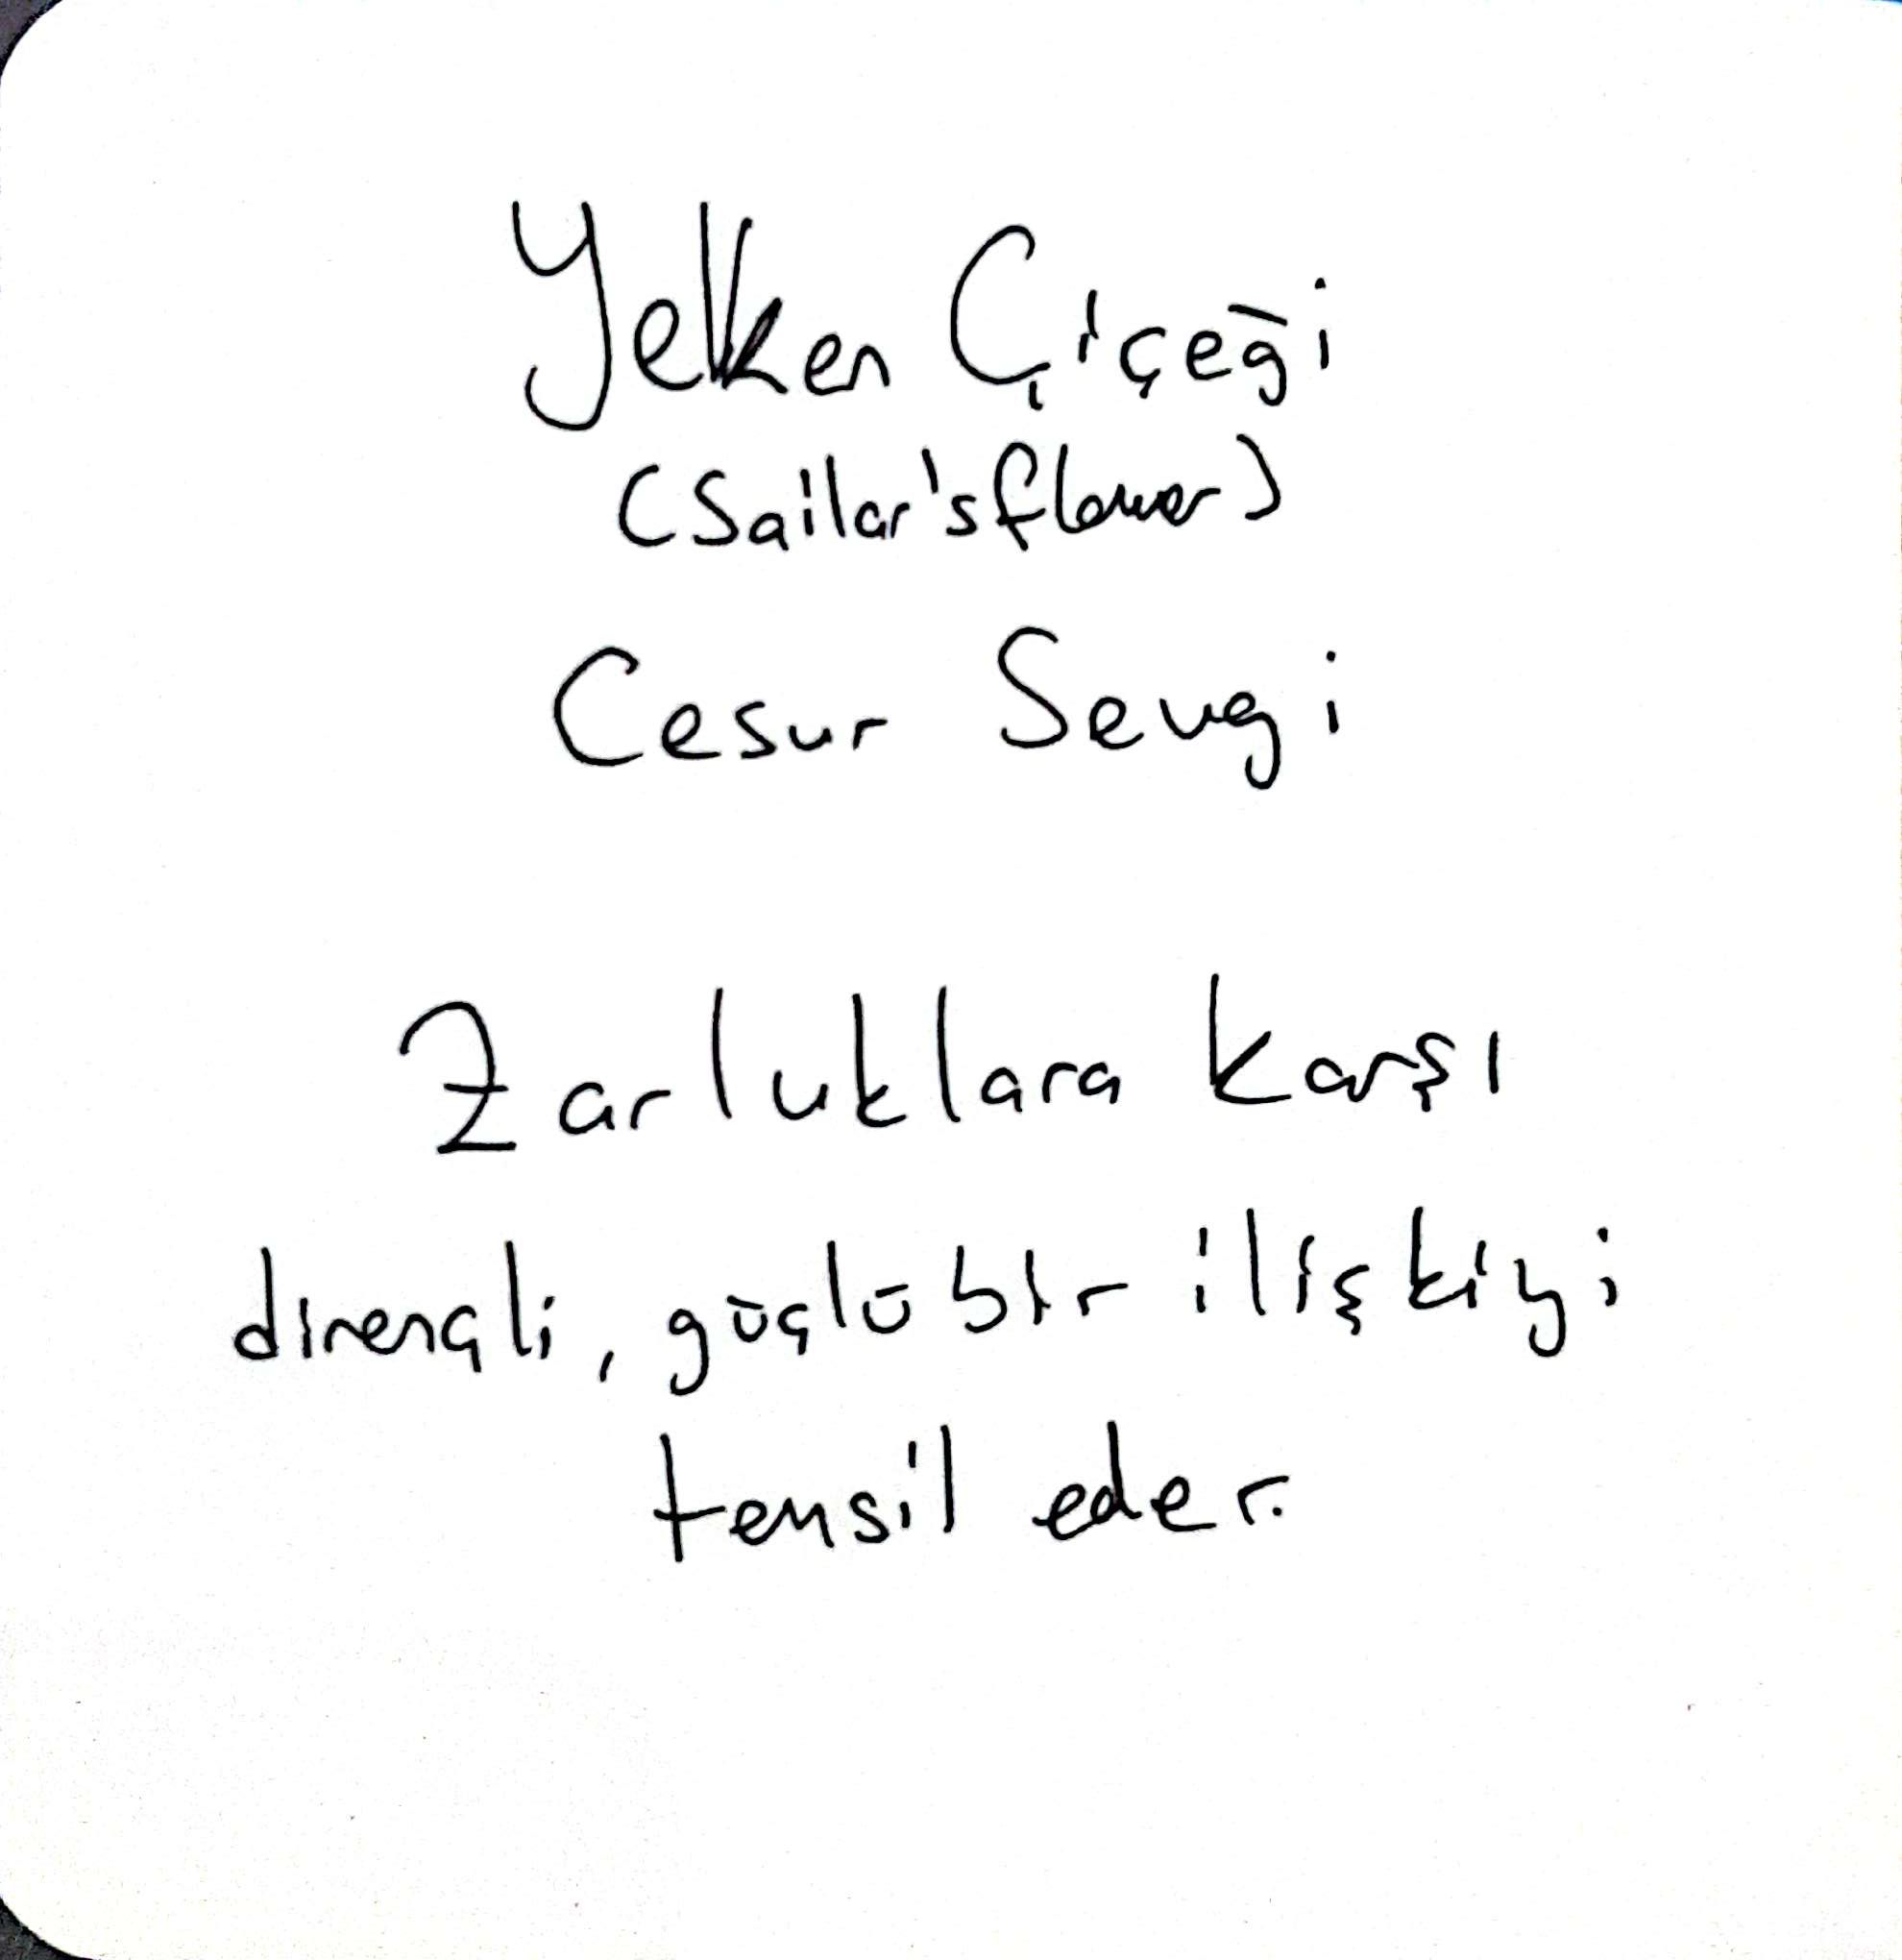 Yelken Çiçeği
(Sailor's flower)
Cesur Sevgi
Zorluklara karşı
dirençli, güçlü bir ilişkiyi
temsil eder.